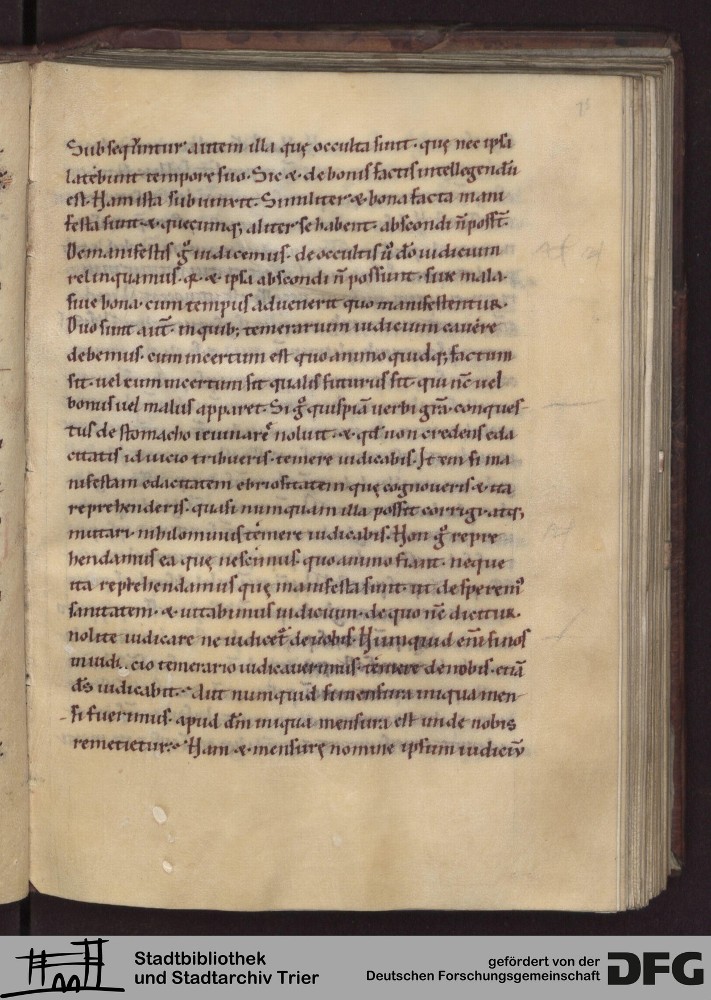 75
Subsequntur autem illa quę occulta sunt · quę nec ipsa
latebunt tempore suo · Sic & · de bonis factis intellegendū
est · Nam ista subiunxit · Similiter & bona facta mani
festa sunt · & quecumq; aliter se habent · abscondi n̄ poss̄t ·
De manifestis g̊ iudicemus · de occultis ů dō iudicium
relinquamus · q̄ & ipsa abscondi n̄ possunt · siue mala ·
siue bona · cum tempus aduenerit quo manifestentur ·
Duo sunt aut̄ · in quib; temerarium iudicium cauere
debemus · cum incertum est quo animo quidq; factum
sit · uel cum incertum sit qualis futurus sit · qui nc̄ uel
bonus uel malus apparet · Si g̊ quispiā uerbi gr̄a · conques
tus de stomacho ieiunare noluit · & qđ non credens eda
citatis id uicio tribueris · temere iudicabis · Item si ma
nifestam edacitatem ebriositatem quę cognoueris · & ita
reprehenderis · quasi numquam illa possit corrigi · atq;
mutari · nihilominus temere iudicabis · Non g̊ repre
hendamus ea quę nescimus · quo animo fiant · neque
ita reprehendamus quę manifesta sunt · ut desperem᾽
sanitatem · & uitabimus iudicium · de quo nc̄ dicitur ·
nolite iudicare ne iudicet᷑ de uobis · Numquid enī si nos
in iudi cio temerario iudicauerimus · temere de nobis · etiā
d̄s iudicabit · Aut numquid si mensura iniqua men
si fuerimus · apud dm̄ iniqua mensura est unde nobis
remetietur · Nam & · mensurę nomine ipsum iudiciū
Stadtbibliothek
und Stadtarchiv Trier
gefördert von der
Deutschen Forschungsgemeinschaft
DFG